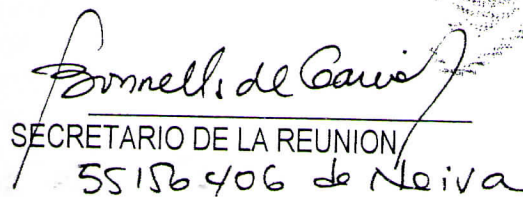 Bonnells de Garcia
SECRETARIO DE LA REUNION
55156406 de Neiva